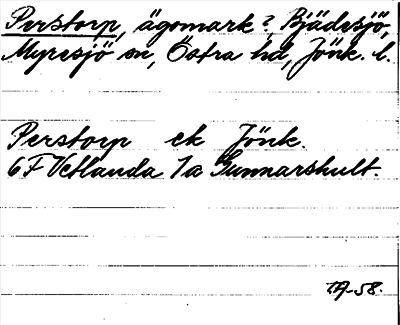 Perstorp, ägomark?, Bjädesjö,
Myresjö sn, Östra hd, Jönk. l.
Perstorp ek Jönk.
6F Vetlanda 1a Gunnarshult.
TA-58.